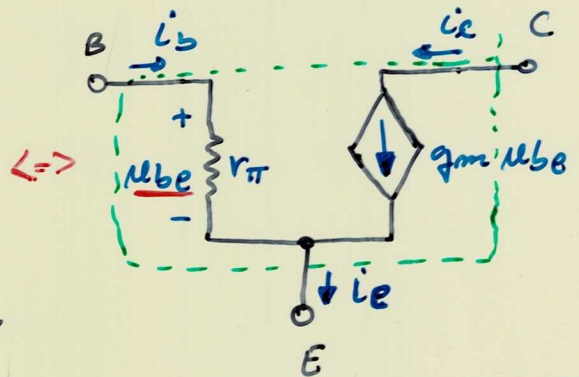 B
i_b
i_c
C
+
<=>
u_be
r_π
g_m u_be
-
i_e
E